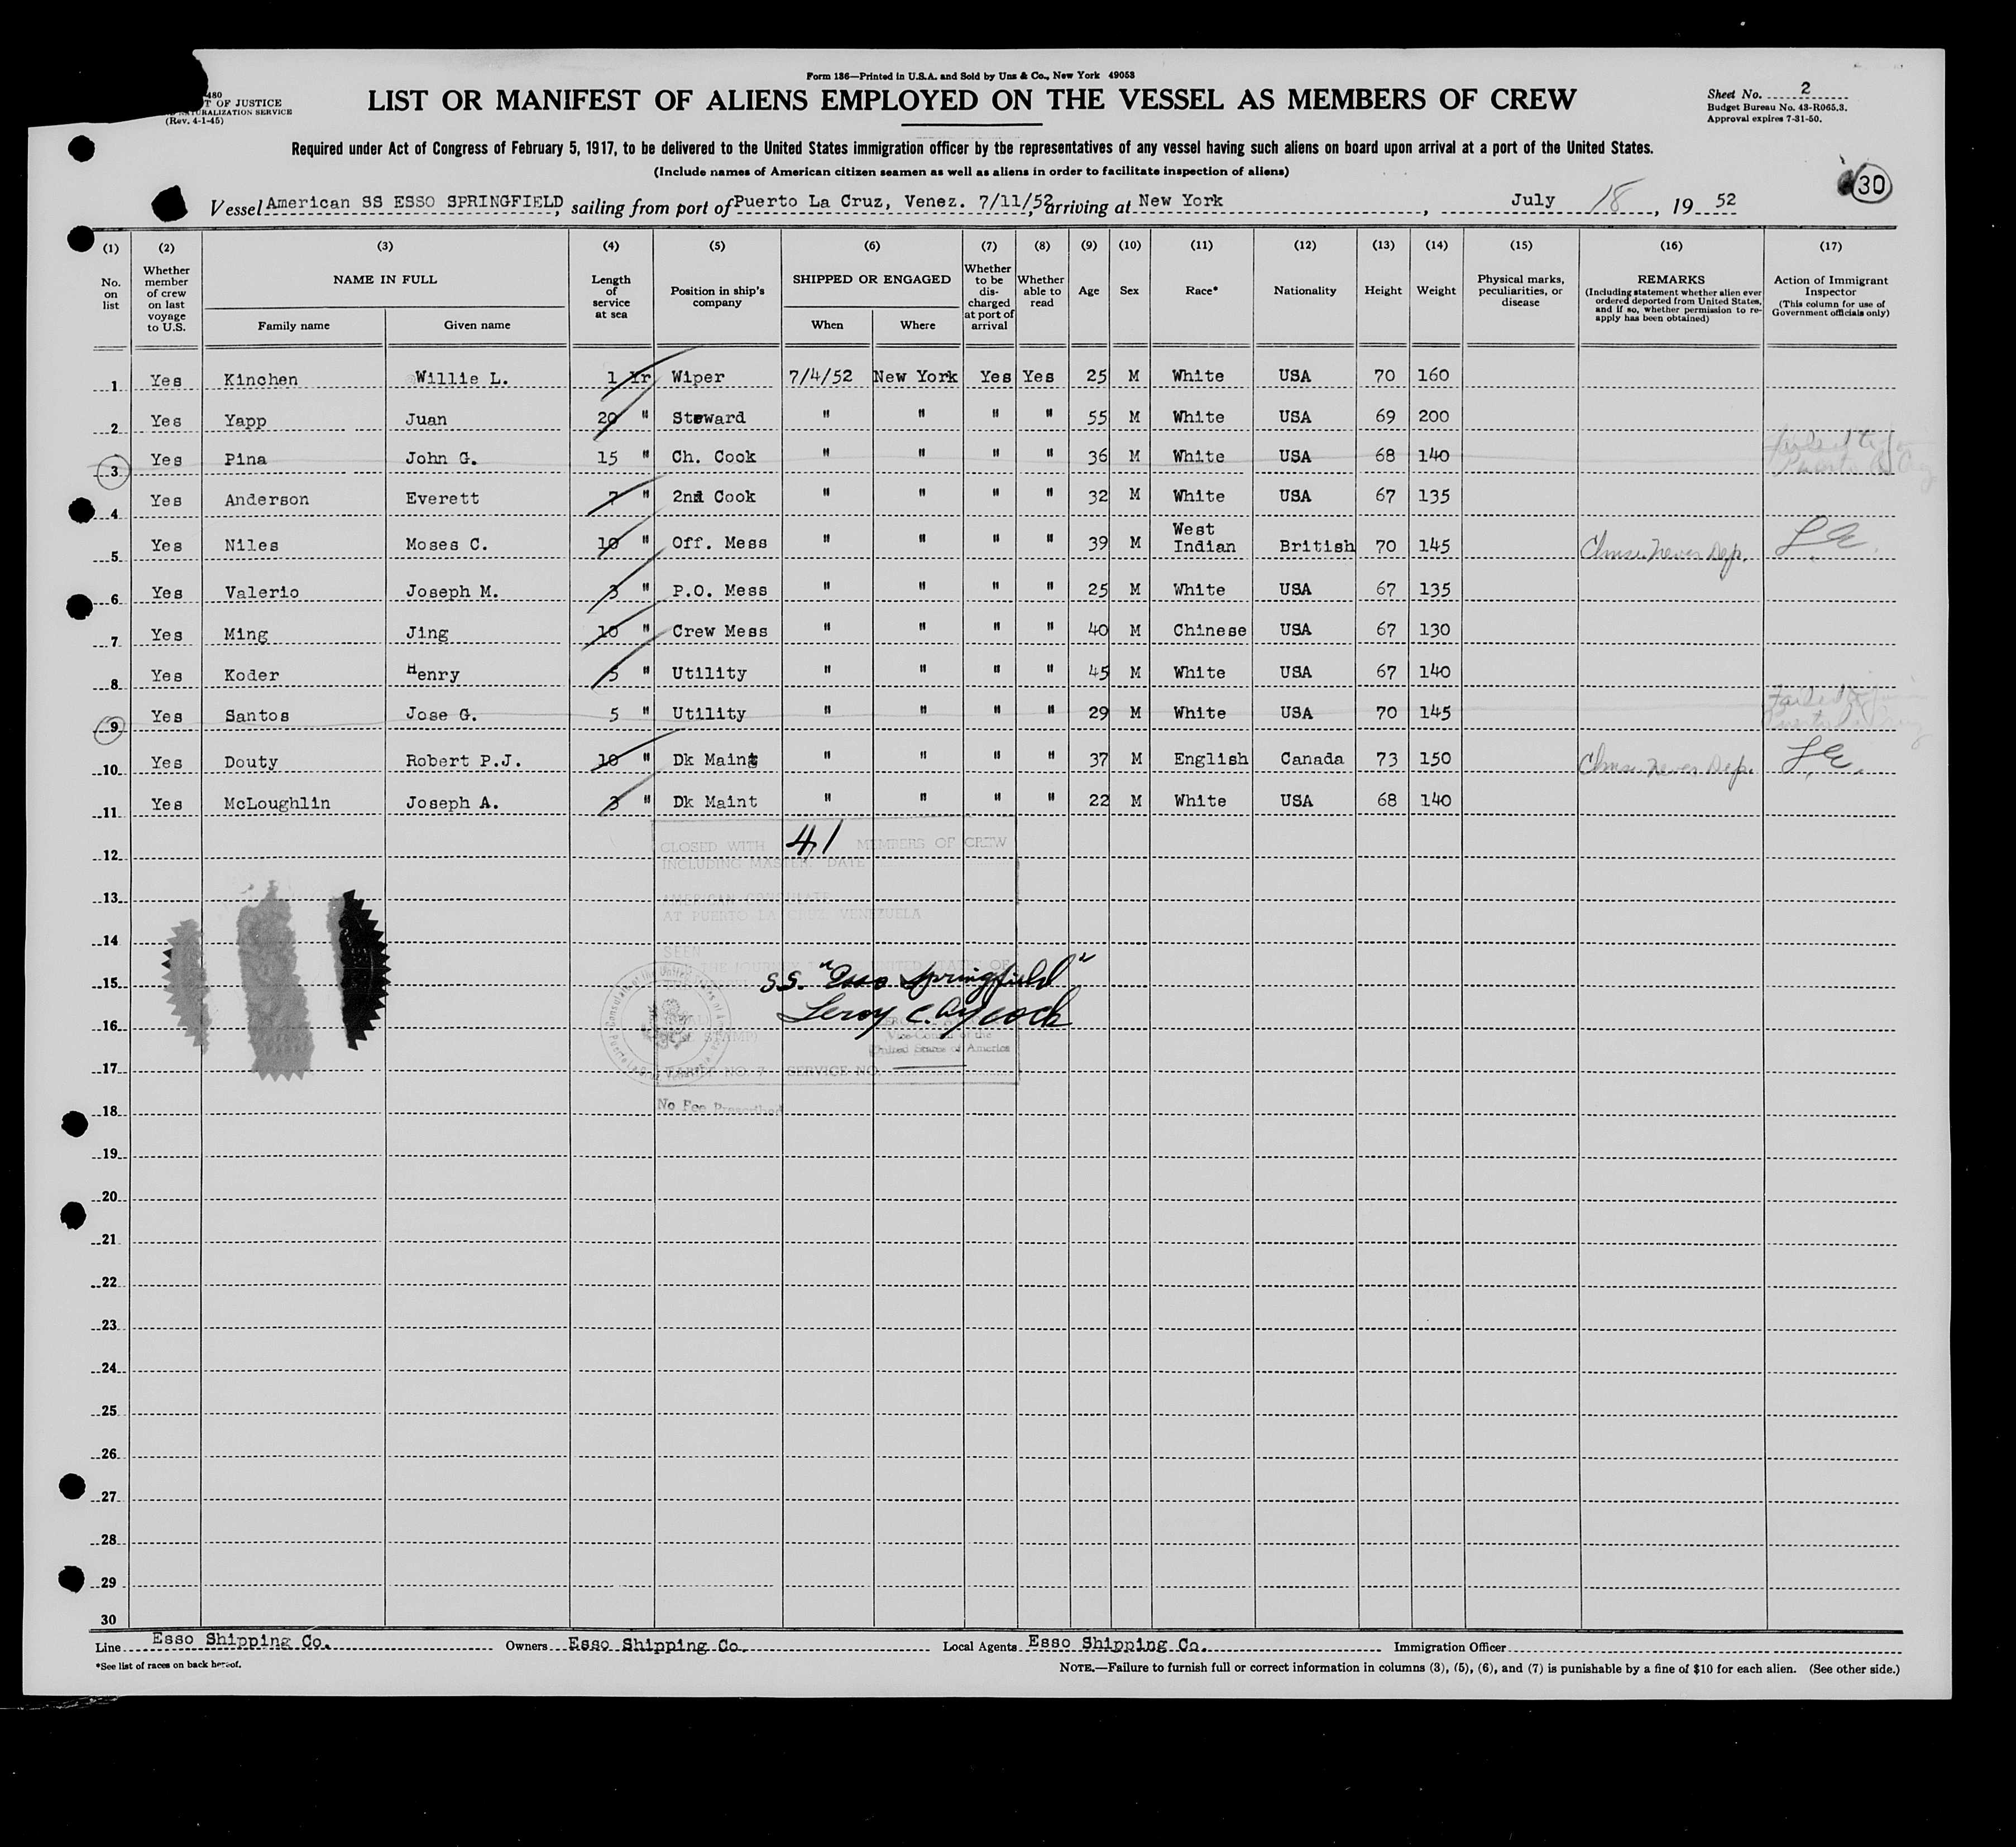 Form 136—Printed in U.S.A. and Sold by Unz & Co., New York 49053
480
T OF JUSTICE
NATURALIZATION SERVICE
(Rev. 4-1-45)
LIST OR MANIFEST OF ALIENS EMPLOYED ON THE VESSEL AS MEMBERS OF CREW
Sheet No. 2
Budget Bureau No. 43-R065.3.
Approval expires 7-31-50.
Required under Act of Congress of February 5, 1917, to be delivered to the United States immigration officer by the representatives of any vessel having such aliens on board upon arrival at a port of the United States.
(Include names of American citizen seamen as well as aliens in order to facilitate inspection of aliens)
30
Vessel American SS ESSO SPRINGFIELD, sailing from port of Puerto La Cruz, Venez. 7/11/52, arriving at New York, July 18, 19 52
(1) (2) (3) (4) (5) (6) (7) (8) (9) (10) (11) (12) (13) (14) (15) (16) (17)
No. on list
Whether member of crew on last voyage to U.S.
NAME IN FULL
Family name
Given name
Length of service at sea
Position in ship's company
SHIPPED OR ENGAGED
When
Where
Whether to be discharged at port of arrival
Whether able to read
Age
Sex
Race*
Nationality
Height
Weight
Physical marks, peculiarities, or disease
REMARKS
(Including statement whether alien ever ordered deported from United States, and if so, whether permission to re-apply has been obtained)
Action of Immigrant Inspector
(This column for use of Government officials only)
1 Yes Kinchen Willie L. 1 Yr Wiper 7/4/52 New York Yes Yes 25 M White USA 70 160
2 Yes Yapp Juan 20 " Steward " " " " 55 M White USA 69 200
3 Yes Pina John G. 15 " Ch. Cook " " " " 36 M White USA 68 140
4 Yes Anderson Everett 7 " 2nd Cook " " " " 32 M White USA 67 135
5 Yes Niles Moses C. 10 " Off. Mess " " " " 39 M West Indian British 70 145 never Dep.
6 Yes Valerio Joseph M. 3 " P.O. Mess " " " " 25 M White USA 67 135
7 Yes Ming Jing 10 " Crew Mess " " " " 40 M Chinese USA 67 130
8 Yes Koder Henry 5 " Utility " " " " 45 M White USA 67 140
9 Yes Santos Jose G. 5 " Utility " " " " 29 M White USA 70 145
10 Yes Douty Robert P.J. 10 " Dk Maint " " " " 37 M English Canada 73 150 never Dep.
11 Yes McLoughlin Joseph A. 3 " Dk Maint " " " " 22 M White USA 68 140
12
CLOSED WITH 41 MEMBERS OF CREW
INCLUDING MASTER. DATE
13
AMERICAN CONSULATE
AT PUERTO LA CRUZ VENEZUELA
14
SEEN
15
S.S. "Esso Springfield"
16
Leroy C. Aycock
Vice-Consul of the
United States of America
17
TARIFF NO. 7 SERVICE NO.
No Fee Prescribed
18
19
20
21
22
23
24
25
26
27
28
29
30
Line Esso Shipping Co. Owners Esso Shipping Co. Local Agents Esso Shipping Co. Immigration Officer
*See list of races on back hereof.
NOTE.—Failure to furnish full or correct information in columns (3), (5), (6), and (7) is punishable by a fine of $10 for each alien. (See other side.)